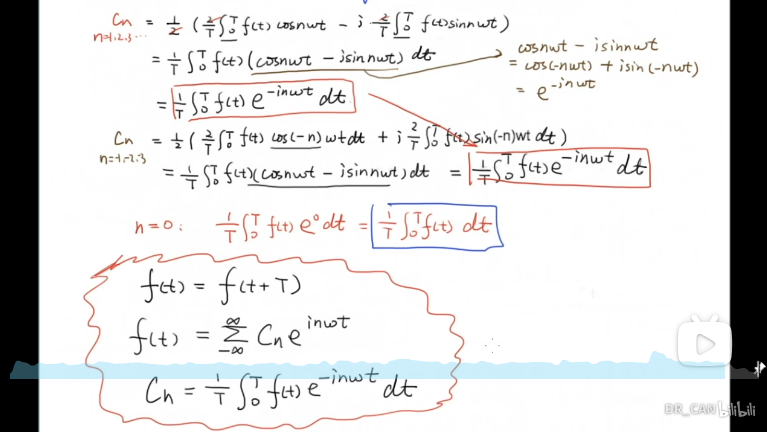 Cn = 1/2 (2/T ∫₀ᵀ f(t) cosnωt − i · 2/T ∫₀ᵀ f(t) sinnωt)
n=1.2.3...
= 1/T ∫₀ᵀ f(t) (cosnωt − isinnωt) dt
cosnωt − isinnωt
= cos(-nωt) + isin(-nωt)
= e^{-inωt}
= 1/T ∫₀ᵀ f(t) e^{-inωt} dt
Cn = 1/2 (2/T ∫₀ᵀ f(t) cos(-n)ωtdt + i 2/T ∫₀ᵀ f(t) sin(-n)ωt dt)
n=-1,-2,-3
= 1/T ∫₀ᵀ f(t)(cosnωt − isinnωt)dt = 1/T ∫₀ᵀ f(t) e^{-inωt} dt
n=0: 1/T ∫₀ᵀ f(t) e⁰ dt = 1/T ∫₀ᵀ f(t) dt
f(t) = f(t+T)
f(t) = ∑_{-∞}^{∞} Cn e^{inωt}
Cn = 1/T ∫₀ᵀ f(t) e^{-inωt} dt
DR_CAN bilibili